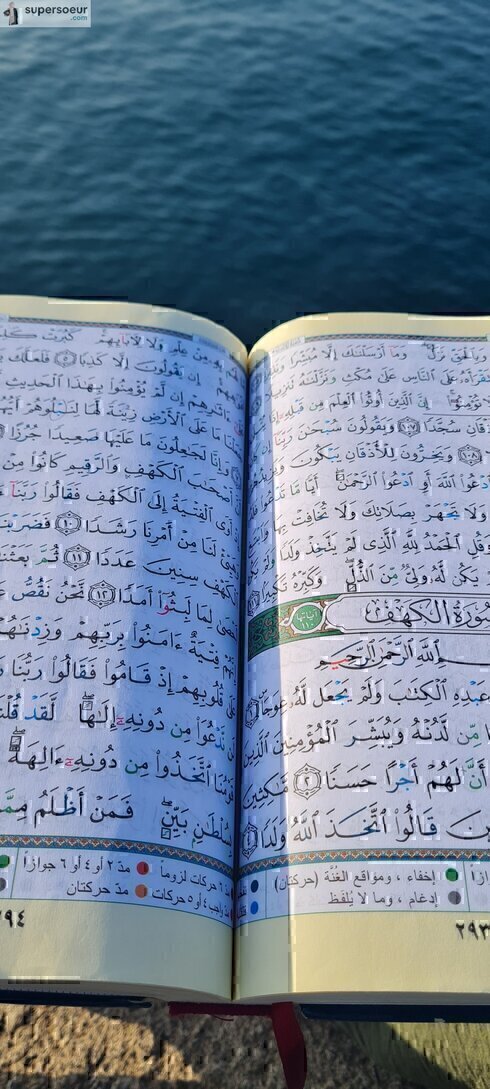 supersoeur
.com
وَبِالْحَقِّ نَزَلَ وَمَا أَرْسَلْنَاكَ إِلَّا مُبَشِّرًا
عَلَى النَّاسِ عَلَى مُكْثٍ وَنَزَّلْنَاهُ
إِنَّ الَّذِينَ أُوتُوا الْعِلْمَ مِن قَبْلِهِ
سُجَّدًا ١٠٧ وَيَقُولُونَ سُبْحَٰنَ رَبِّنَا
١٠٨ وَيَخِرُّونَ لِلْأَذْقَانِ يَبْكُونَ
ٱدْعُوا۟ ٱللَّهَ أَوِ ٱدْعُوا۟ ٱلرَّحْمَٰنَ أَيًّا مَّا
وَلَا تَجْهَرْ بِصَلَاتِكَ وَلَا تُخَافِتْ بِهَا
وَقُلِ ٱلْحَمْدُ لِلَّهِ ٱلَّذِى لَمْ يَتَّخِذْ وَلَدًا وَلَمْ
يَكُن لَّهُۥ وَلِىٌّ مِّنَ ٱلذُّلِّ وَكَبِّرْهُ تَكْبِيرًا
سُورَةُ الكَهْفِ آيَاتُهَا ١١٠
ٱللَّهِ ٱلرَّحْمَٰنِ ٱلرَّحِيمِ
عَبْدِهِ ٱلْكِتَٰبَ وَلَمْ يَجْعَل لَّهُۥ عِوَجَا ١
مِّن لَّدُنْهُ وَيُبَشِّرَ ٱلْمُؤْمِنِينَ ٱلَّذِينَ
أَنَّ لَهُمْ أَجْرًا حَسَنًا ٢ مَّٰكِثِينَ
قَالُوا۟ ٱتَّخَذَ ٱللَّهُ وَلَدًا ٤
إخفاء ، ومواقع الغُنَّة (حركتان)
إدغام ، وما لا يُلفَظ
٢٩٣
بِهِۦ مِنْ عِلْمٍ وَلَا لِـَٔابَآئِهِمْ كَبُرَتْ
إِن يَقُولُونَ إِلَّا كَذِبًا ٥ فَلَعَلَّكَ
ءَاثَٰرِهِمْ إِن لَّمْ يُؤْمِنُوا۟ بِهَٰذَا ٱلْحَدِيثِ
مَا عَلَى ٱلْأَرْضِ زِينَةً لَّهَا لِنَبْلُوَهُمْ أَيُّهُمْ
وَإِنَّا لَجَٰعِلُونَ مَا عَلَيْهَا صَعِيدًا جُرُزًا ٨
أَصْحَٰبَ ٱلْكَهْفِ وَٱلرَّقِيمِ كَانُوا۟ مِنْ
إِذْ أَوَى ٱلْفِتْيَةُ إِلَى ٱلْكَهْفِ فَقَالُوا۟ رَبَّنَآ
وَهَيِّئْ لَنَا مِنْ أَمْرِنَا رَشَدًا ١٠ فَضَرَبْنَا
ٱلْكَهْفِ سِنِينَ عَدَدًا ١١ ثُمَّ بَعَثْنَٰهُمْ
أَحْصَىٰ لِمَا لَبِثُوٓا۟ أَمَدًا ١٢ نَّحْنُ نَقُصُّ
فِتْيَةٌ ءَامَنُوا۟ بِرَبِّهِمْ وَزِدْنَٰهُمْ
عَلَىٰ قُلُوبِهِمْ إِذْ قَامُوا۟ فَقَالُوا۟ رَبُّنَا
لَن نَّدْعُوَا۟ مِن دُونِهِۦٓ إِلَٰهًا لَّقَدْ قُلْنَآ
قَوْمُنَا ٱتَّخَذُوا۟ مِن دُونِهِۦٓ ءَالِهَةً
بِسُلْطَٰنٍ بَيِّنٍ فَمَنْ أَظْلَمُ مِمَّنِ
مدّ ٦ حركات لزوماً مدّ ٢ أو ٤ أو ٦ جوازاً
مدّ واجب ٤ أو ٥ حركات مدّ حركتان